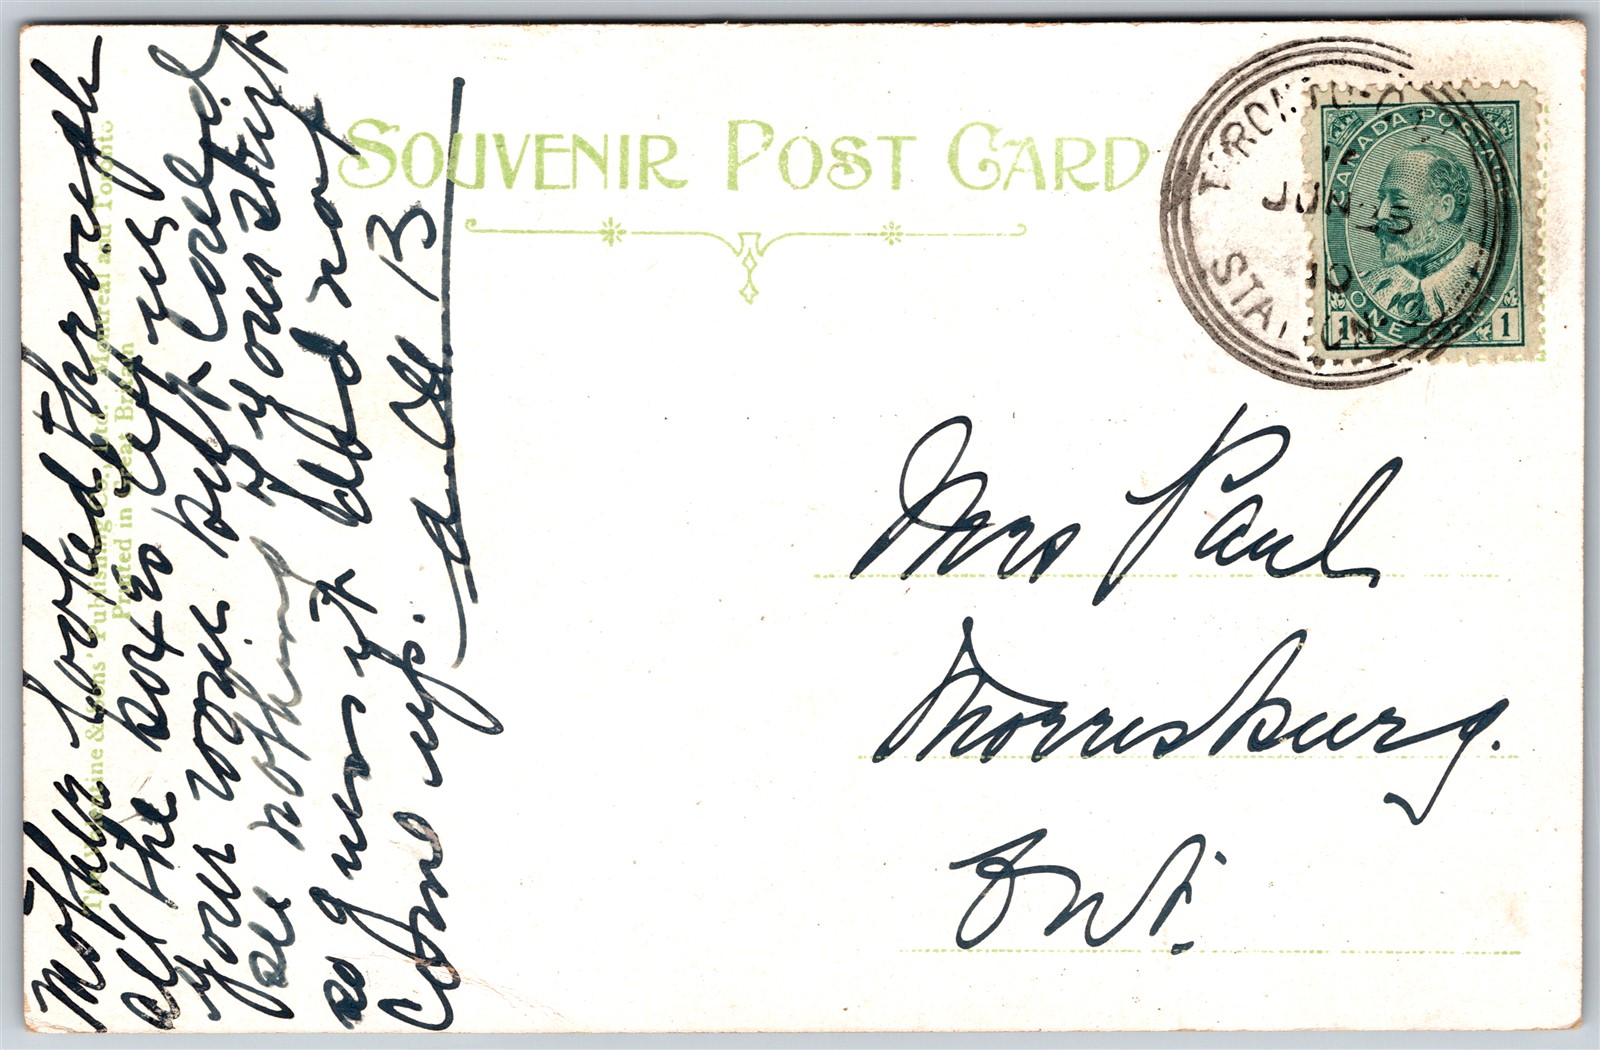 SOUVENIR POST CARD
TORONTO
JUN 15
10
STATION
CANADA POSTAGE
1 ONE CENT 1
Mother looked through
all the boxes left in
your room but could
see nothing of your skirt
so guess it did not
come up. A. H. B
Mrs Paul
Morrisburg.
Ont.
The Valentine & Sons' Publishing Co., Ltd. Montreal and Toronto
Printed in Great Britain